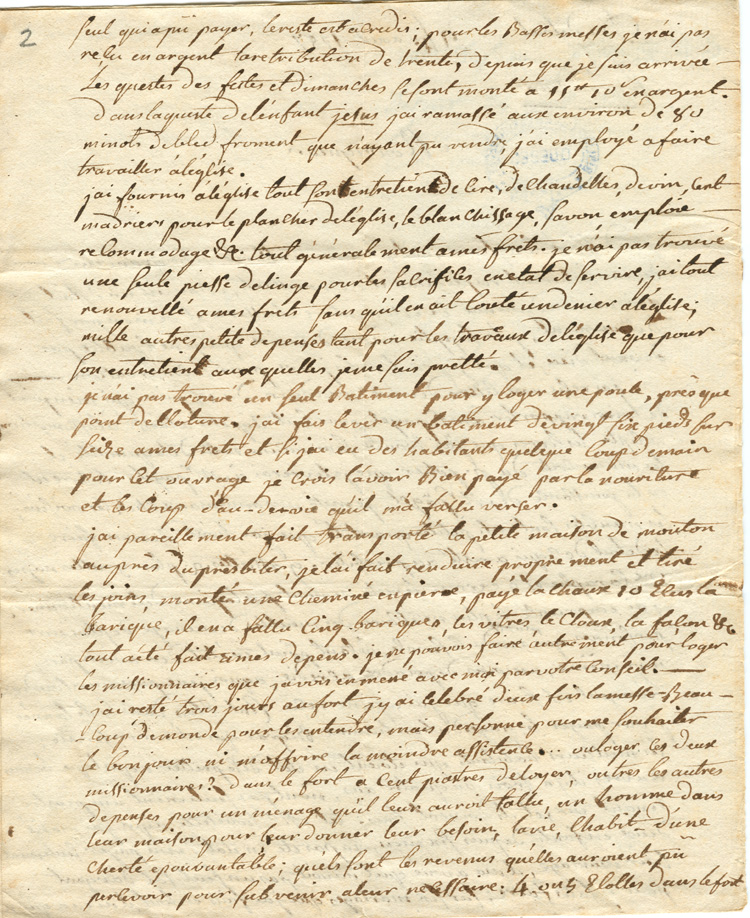 2
seul qui a pû payer, le reste est a credis; pour les Basses messes je n'ai pas
reçu en argent la retribution de trente, depuis que je suis arrivée —
Les questes des festes et dimanches se sont monté a 11# 10s en argent.
dans la queste de l'enfant jesus j'ai ramassé aux environ de 80
minots de bled froment que n'ayant pu vendre, j'ai employé a faire
travailler a l'église.
j'ai fournis a l'église tout son entretient de cire, de chandelles, de vin, cent
madriers pour le plancher de l'église, le blanchissage, savon emploié —
recommodage &c. tout généralement a mes frêts. je n'ai pas trouvé
une seule piesse de linge pour les sacrifices en etat de servire, j'ai tout
renouvellé a mes frets sans qu'il en ait couté un denier a l'église;
mille autres petite depenses tant pour les travaux de l'église que pour
son entretient aux quelles je me suis pretté.
je n'ai pas trouvé un seul Batiment pour y loger une poule, près que
point de cloture. j'ai fais levér un batiment de vingt six pieds sur
seize a mes frets et si j'ai eu des habitants quelque coup de main
pour cet ouvrage je crois l'avoir Bien payé par la nouriture
et les coup d'au-de-vie qu'il m'a fallu verser.
j'ai pareillement fait transporté la petite maison de mouton
au près du presbiter, je l'ai fait renduire propre ment et tiré
les joins, montér une cheminé en pierre, payé la chaux 10 Elus la
barique, il en a fallu cinq bariques, les vitres le cloux, la façon &c
tout a été fait a mes depens. je ne pouvois faire autrement pour loger
les missionnaires que j'avois emmené avec moi par votre conseil. —
j'ai resté trois jours au fort j'y ai celebré deux fois la messe — Beau-
-coup de monde pour les entendre, mais personne pour me souhaiter
le bonjour ni m'offrire la moindre assistence... ou loger ces deux
missionnaires? dans le fort a cent piastres de loyer, outres les autres
depenses pour un ménage qu'il leur auroit fallu, un homme dans
leur maison pour leur donner leur besoin, la vie, l'habit — d'une
cherté epouvantable; quels sont les revenus qu'elles auroient pû
percevoir pour subvenir a leur necessaire. 4 ou 5 Ecolles dans le fort